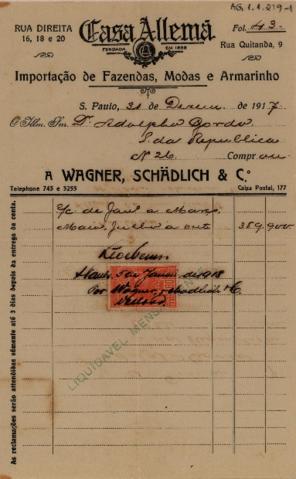 AG. 1.1.219-1
RUA DIREITA
16, 18 e 20
Casa Allemã
FUNDADA EM 1883
Fol. 43.
Rua Quitanda, 9
Importação de Fazendas, Modas e Armarinho
S. Paulo, 31 de Dezem de 1917
O Illm. Snr. Dr. Adolpho Gordo
P. da Republica
Nº 26 Comprou
A WAGNER, SCHÄDLICH & Cº
Telephone 743 e 5255
Caixa Postal, 177
c/c de Janl a Março,
Maio, Julho a Out 389.900
Recebemos
S. Paulo, 5 de Janeiro de 1918
Por Wagner, Schadlich & C.
LIQUIDAVEL MENS
As reclamações serão attendidas sómente até 3 dias depois da entrega da conta.